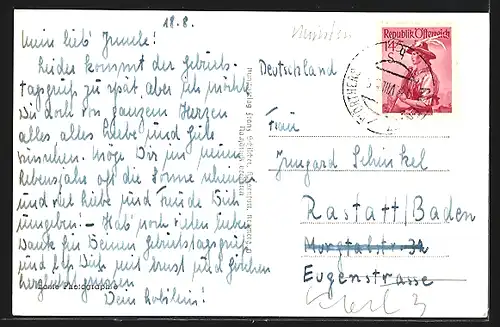 18.8.
Mein lieb'
Leider kommt der Geburts-
tagsgruß zu spät, aber ich möchte
Dir doch von ganzem Herzen
alles Liebe und Gute
wünschen. Möge Dir im neuen
Lebensjahr oft die Sonne scheinen
und viel Liebe und Freude Dich
umgeben! - Hab' noch vielen lieben
Dank für Deinen Geburtstagsgruß
und laß Dich mit Ernst und
herzlichst grüssen
Dein
Echte Photographie
Republik Österreich
Deutschland
Frau
Irmgard Schinkel
Rastatt/Baden
Murgtalstr.
Eugenstrasse